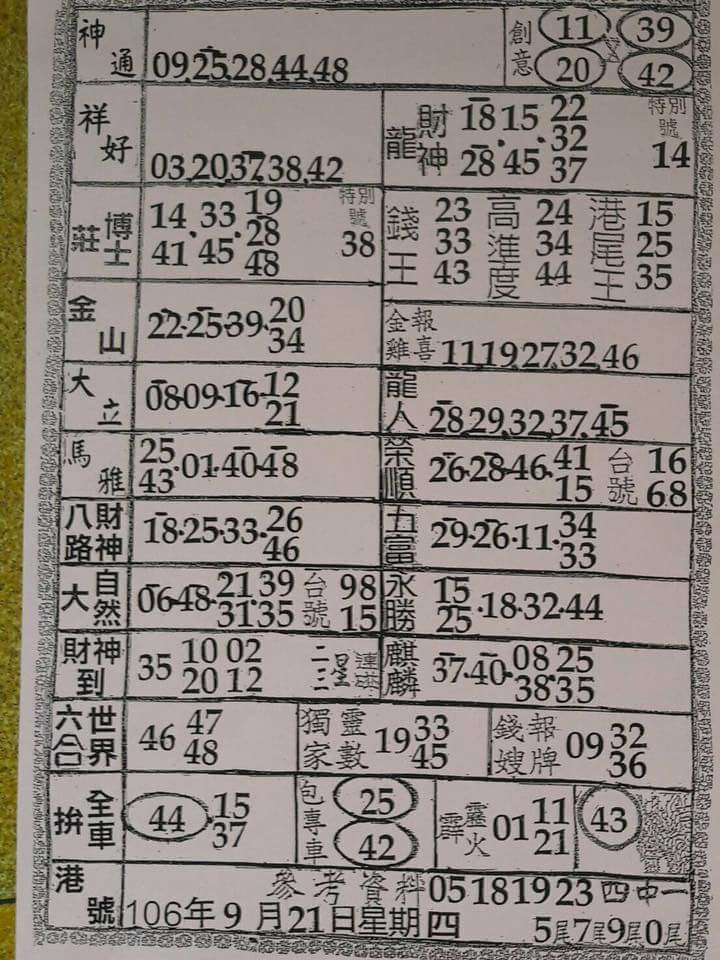 神通 09,25,28,44,48 創意 11 39
20 42
祥好 03,20,37,38,42 龍 財神 18 15 22 特別號
32
28 45 37 14
莊 博士 14 33 19 特別號
28 38
41 45 48
錢王 23 高進度 24 港尾王 15
33 34 25
43 44 35
金山 22·25·39·20
34
金雞報喜 11,19,27,32,46
大立 08·09·16·12
21
龍人 28,29,32,37,45
馬雅 25·01·40·48
43
榮順 26·28·46·41 台號 16
15 68
八路財神 18·25·33·26
46
五富 29·26·11·34
33
大自然 06·48·21·39 台號 98
31·35 15
永勝 15·18·32·44
25
財神到 35 10 02 二三星連碰
20 12
麒麟 37·40·08·25
38·35
六合世界 46 47
48
獨家靈數 19 33
45
錢嫂報牌 09 32
36
拚全車 44 15
37
包專車 25
42
霹靂火 01 11 43
21
港號 參考資料 05 18 19 23 四中一
106年9月21日星期四 5尾7尾9尾0尾